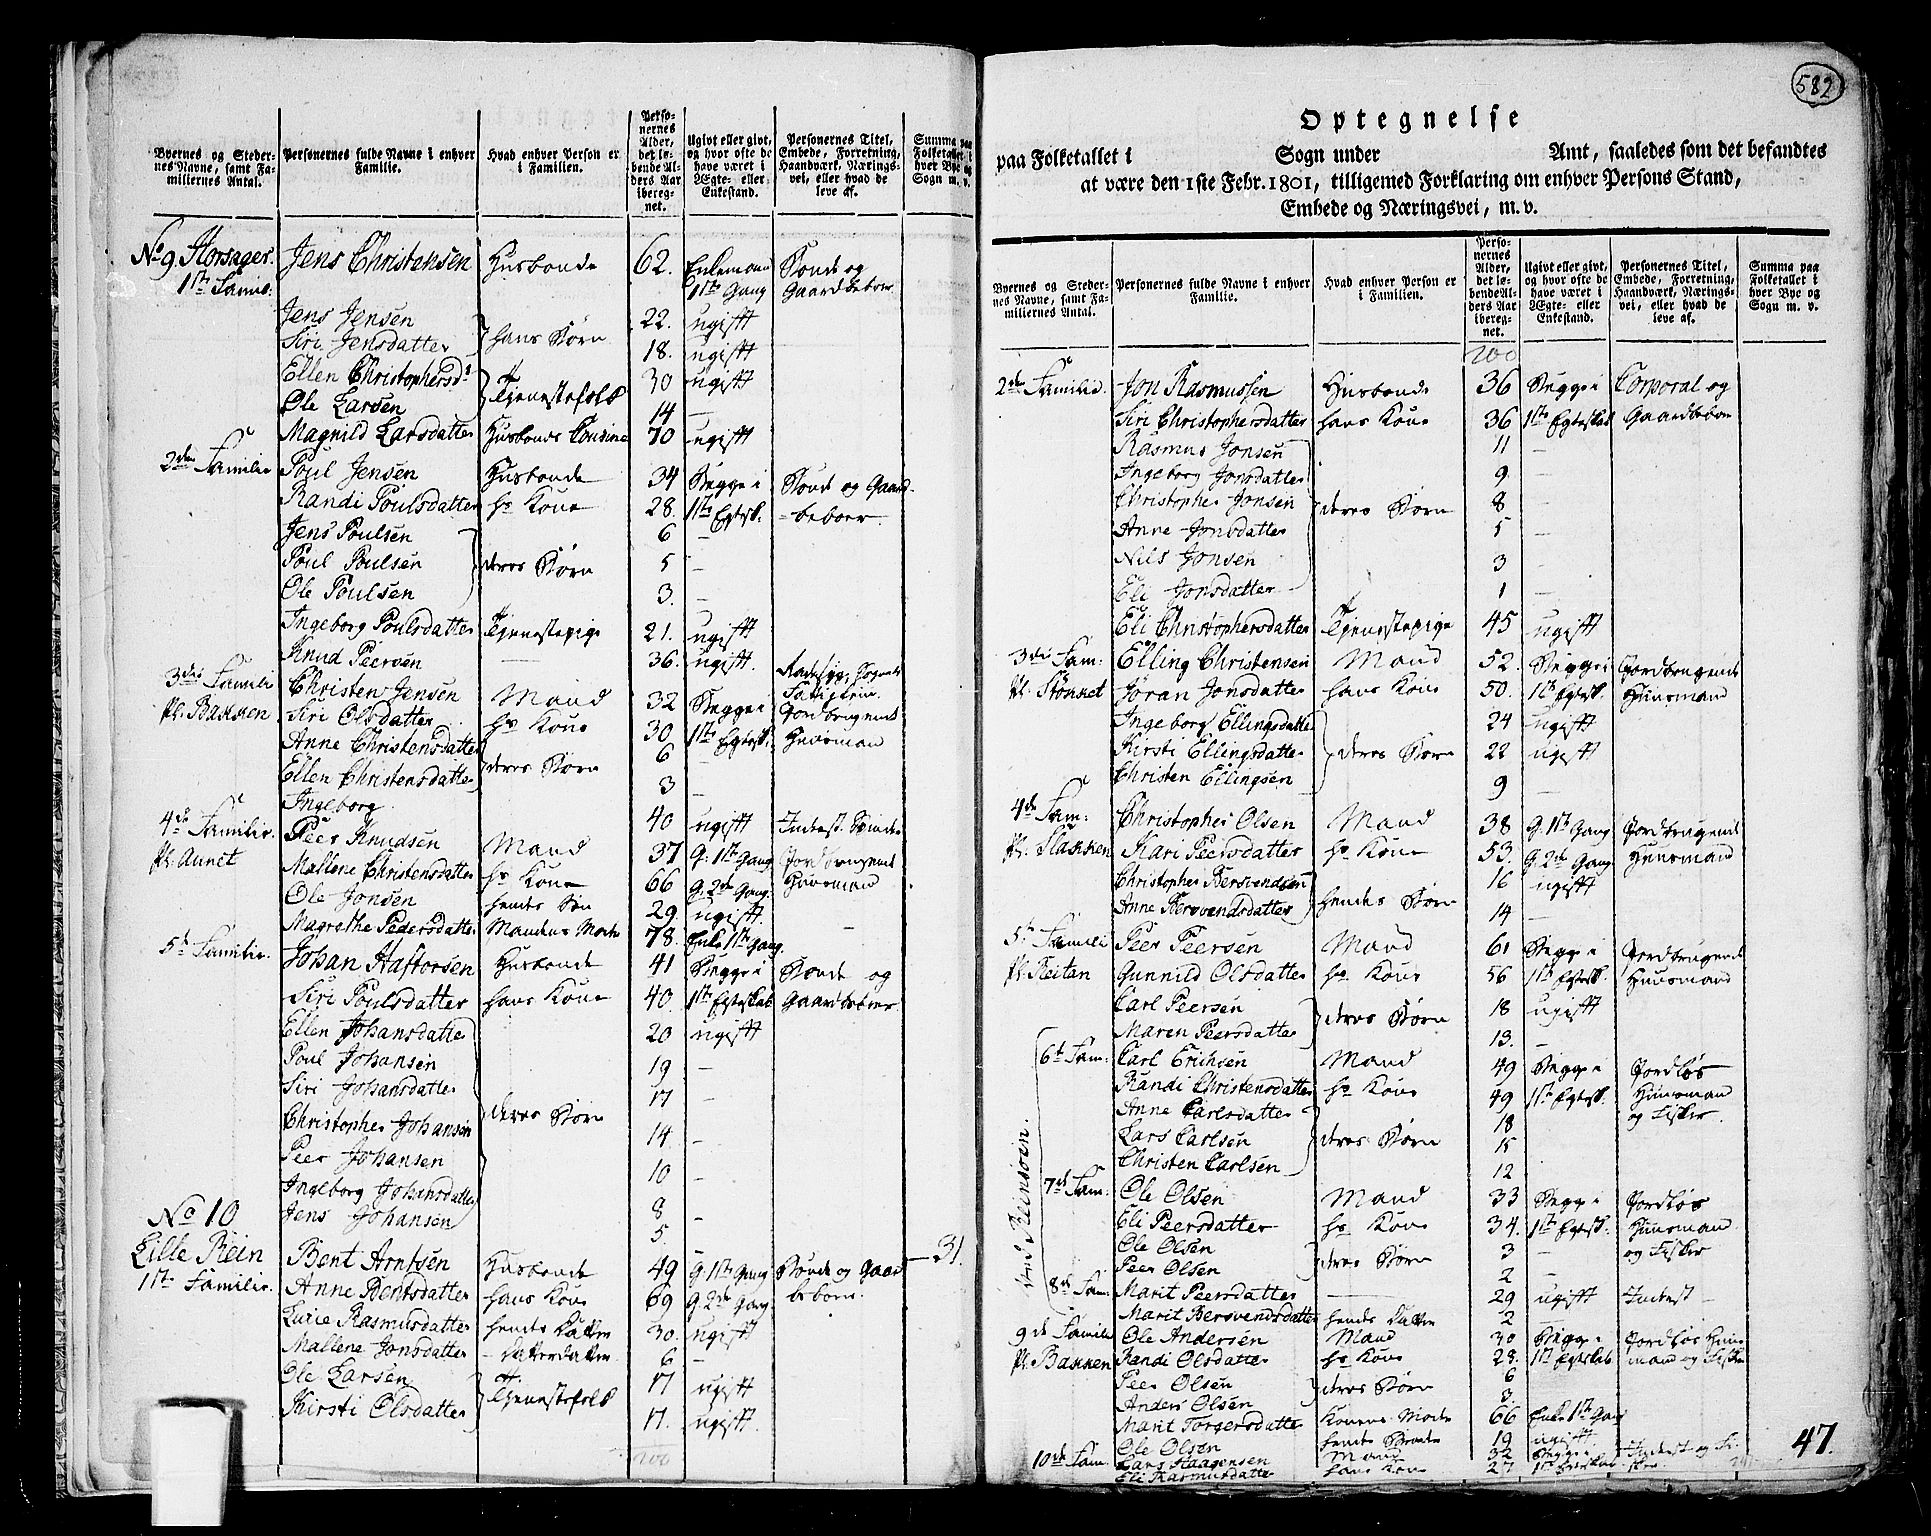 582
Byernes og Steder-
nes Navne, samt Fa-
miliernes Antal.
Personernes fulde Navne i enhver
Familie.
Hvad enhver Person er
i Familien.
Perso-
nernes
Alder,
det lø-
bende Al-
ders Aar
iberég-
net.
Ugivt eller givt,
og hvor ofte de
have været i
Ægte- eller
Enkestand.
Personernes Titel,
Embede, Forretning,
Haandværk, Nærings-
vei, eller hvad de
leve af.
Summa paa
Folketallet i
hver Bye og
Sogn m. v.
No 9. Horsager. Jens Christensen Husbonde 62. Enkemand Bonde og
1ste Famil: 1ste Gang Gaardbeboer
Jens Jensen hans Børn 22. ugift
Siri Jensdatter 18. ugift
Ellen Christophersdr Tjenestefolk 30 ugift
Ole Larsen 14 —
Magnild Larsdatter Husbonds Cousine 70 ugift
2den Familie Poul Jensen Husbonde 34 Begge i Bonde og Gaard-
Randi Poulsdatter hs Kone 28. 1ste Egtesk. beboer.
Jens Poulsen 6 —
Poul Poulsen deres Børn 5 —
Ole Poulsen 3. —
Ingeborg Poulsdatter Tjenestepige 21. ugift
Knud Peersen — 36. ugift.
3die Famili Christen Jensen Mand 32 Begge i Jordbrugende
Pl. Bakken Siri Olsdatter hs Kone 30 1ste Egtesk. Huusmand
Anne Christensdatter deres Børn 6
Ellen Christensdatter 3 —
Ingeborg 40 ugift Inderst.
4de Familie. Peer Knudsen Mand 37 G: 1ste Gang Jordbrugende
Pl. Aunet Mallene Christensdatter hs Kone 66 G. 2de Gang. Huusmand
Ole Jonsen hendes Søn 29 ugift
Magrethe Pedersdatter Mandens Moder 78. Enke 1ste Gang. —
5te Familie. Johan Haftorsen Husbonde 41 Begge i Bonde og
Siri Poulsdatter hans Kone 40. 1ste Egteskab Gaardbeboer
Ellen Johansdatter 20 ugift
Poul Johansen 19 —
Siri Johansdatter 17 —
Christopher Johansen deres Børn 14 —
Peer Johansen 10 —
Ingeborg Johansdatter 8 —
Jens Johansen 5 —
No 10
Lille Rein Bent Arntsen Husbonde 49 G. 1ste Gang Bonde og Gaard — 31.
1ste Familie. Anne Bentsdatter hans Kone 69 G. 2de Gang. beboer.
Lucie Rasmusdatter hendes Datter 30. ugift
Mallene Jonsdatter — Datterdatter 6 —
Ole Larsen Tjenestefolk 17 ugift
Kirsti Olsdatter 17. ugift
200
Optegnelse
paa Folketallet i Sogn under Amt, saaledes som det befandtes
at være den 1ste Febr. 1801, tilligemed Forklaring om enhver Persons Stand,
Embede og Næringsvei, m. v.
Byernes og Steder-
nes Navne, samt Fa-
miliernes Antal.
Personernes fulde Navne i enhver
Familie.
Hvad enhver Person er
i Familien.
Perso-
nernes
Alder,
det lø-
bende Al-
ders Aar
ibereg-
net.
Ugivt eller givt,
og hvor ofte de
have været i
Ægte- eller
Enkestand.
Personernes Titel,
Embede, Forretning,
Haandværk, Nærings-
vei, eller hvad de
leve af.
Summa paa
Folketallet i
hver Bye og
Sogn m. v.
200
2de Familie. Jon Rasmussen Husbonde 36 Begge i Corporal og
Siri Christophersdatter hans Kone 36 1ste Egteskab Gaardbeboer
Rasmus Jonsen 11 —
Ingeborg Jonsdatter 9 —
Christopher Jonsen deres Børn 8
Anne Jonsdatter 5 —
Nils Jonsen 3 —
Eli Jonsdatter 1 —
Eli Christophersdatter Tjenestepige 45 ugift
3die Fam: Elling Christensen Mand 52. Begge i Jordbrugende
Pl. Stokket Joran Jonsdatter hans Kone 50. 1ste Egtesk. Huusmand
Ingeborg Ellingsdatter 24 ugift
Kirsti Ellingsdatter deres Børn 22 ugift
Christen Ellingsen 9 —
4de Fam: Christopher Olsen Mand 38 G. 1ste Gang Jordbrugende
Pl. Flakken Kari Peersdatter hs Kone 53. G. 2de Gang Huusmand
Christopher Bersvendsen 16 ugift
Anne Bersvendsdatter hendes Børn 14 —
5te Famili Peer Peersen Mand 61 Begge i Jordbrugende
Pl. Reitan Gunnild Olsdatter hs Kone 56 1ste Egtesk. Huusmand
Carl Peersen deres Børn 18 ugift
Maren Peersdatter 13. —
6te Fam: Carl Erichsen Mand 49 Begge i Jordløs
Randi Christensdatter hs Kone 49 1ste Egtesk. Huusmand
Anne Carlsdatter 18 og Fisker.
Lars Carlsen deres Børn 15
Christen Carlsen 12
7de Fam: Ole Olsen Mand 33 Begge i Jordløs
Eli Peersdatter hs Kone 34. 1ste Egtesk. Huusmand
Ole Olsen deres Børn 3 — og Fisker
Peer Olsen 2 —
8de Fam: Marit Peersdatter — 29 ugift Inderst —
Marit Bersvendsdatter hendes Datter 2 —
ved Reinsøen.
9de Famili Ole Andersen Mand 30 Begge i Jordløs Huus-
Pl. Bakken Randi Olsdatter hs Kone 28. 1ste Egteskab mand og Fisker
Peer Olsen deres Børn 6
Anders Olsen 3.
Marit Torgersdatter Konens Moder 66 Enke 1ste Gang
Ole Olsen hendes Broder 19 ugift
10de Fam: Lars Haagensen Mand 32 Begge i Inderst og Fi-
Eli Rasmusdatter hans Kone 27 1ste Egteskab sker
47.